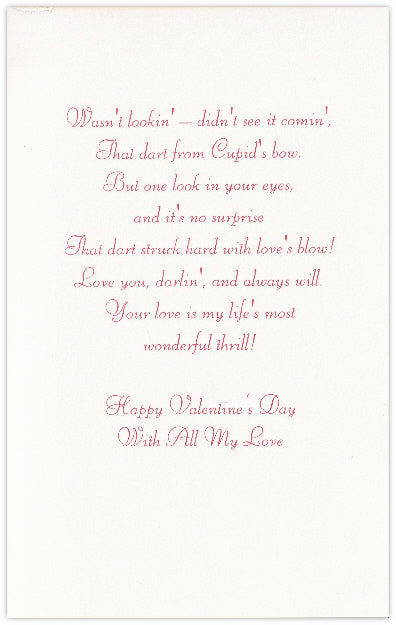 Wasn't lookin' — didn't see it comin',
That dart from Cupid's bow.
But one look in your eyes,
and it's no surprise
That dart struck hard with love's blow!
Love you, darlin', and always will.
Your love is my life's most
wonderful thrill!
Happy Valentine's Day
With All My Love